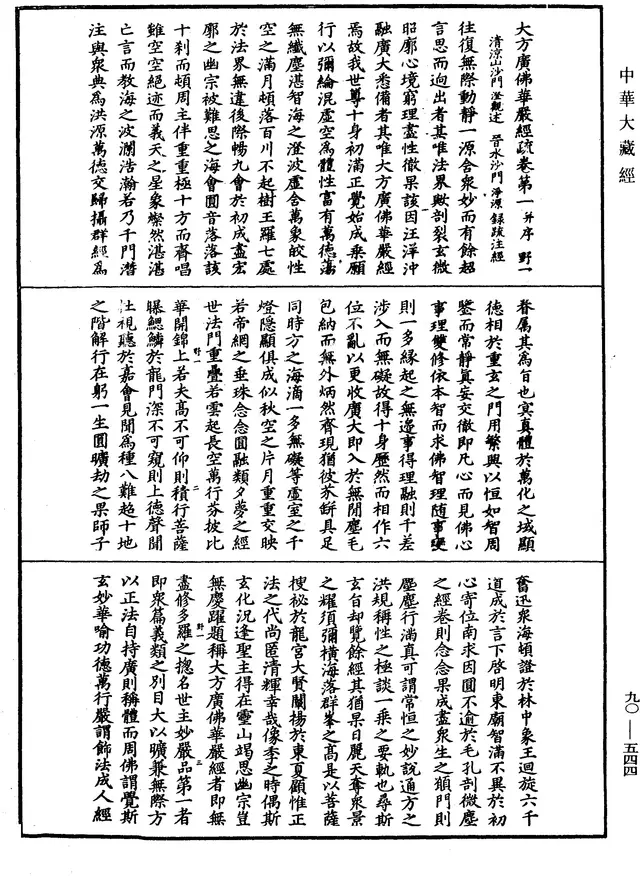 中華大藏經
大方廣佛華嚴經疏卷第一 并序 野一
清涼山沙門 澄觀述 晉水沙門 淨源 錄疏注經
往復無際動靜一源含衆妙而有餘超
言思而迥出者其唯法界歟剖裂玄微
昭廓心境窮理盡性徹果該因汪洋沖
融廣大悉備者其唯大方廣佛華嚴經
焉故我世尊十身初滿正覺始成乘願
行以彌綸混虛空為體性富有萬德蕩
無纖塵湛智海之澄波虛含萬象皎性
空之滿月頓落百川不起樹王羅七處
於法界無違後際暢九會於初成盡宏
廓之幽宗被難思之海會圓音落落該
十刹而頓周主伴重重極十方而齊唱
雖空空絕迹而義天之星象燦然湛湛
亡言而教海之波瀾浩瀚若乃千門潛
注與衆典為洪源萬德交歸攝群經為
眷屬其為旨也冥真體於萬化之域顯
德相於重玄之門用繁興以恒如智周
鑒而常靜真妄交徹即凡心而見佛心
事理雙修依本智而求佛智理隨事變
則一多緣起之無邊事得理融則千差
涉入而無礙故得十身歷然而相作六
位不亂以更收廣大即入於無間塵毛
包納而無外炳然齊現猶彼芥缾具足
同時方之海滴一多無礙等虛室之千
燈隱顯俱成似秋空之片月重重交映
若帝網之垂珠念念圓融類夕夢之經
世法門重疊若雲起長空萬行芬披比
野一 二
華開錦上若夫高不可仰則積行菩薩
曝鰓鱗於龍門深不可窺則上德聲聞
杜視聽於嘉會見聞為種八難超十地
之階解行在躬一生圓曠劫之果師子
奮迅衆海頓證於林中象王迴旋六千
道成於言下啓明東廟智滿不異於初
心寄位南求因圓不逾於毛孔剖微塵
之經卷則念念果成盡衆生之願門則
塵塵行滿真可謂常恒之妙說通方之
洪規稱性之極談一乘之要軌也尋斯
玄旨却覽餘經其猶杲日麗天奪衆景
之耀須彌橫海落群峯之高是以菩薩
搜祕於龍宮大賢闡揚於東夏顧惟正
法之代尚匿清輝幸哉像季之時偶斯
玄化況逢聖主得在靈山竭思幽宗豈
無慶躍題稱大方廣佛華嚴經者即無
野一 三
盡修多羅之揔名世主妙嚴品第一者
即衆篇義類之別目大以曠兼無際方
以正法自持廣則稱體而周佛謂覺斯
玄妙華喻功德萬行嚴謂飾法成人經
九〇—五四四